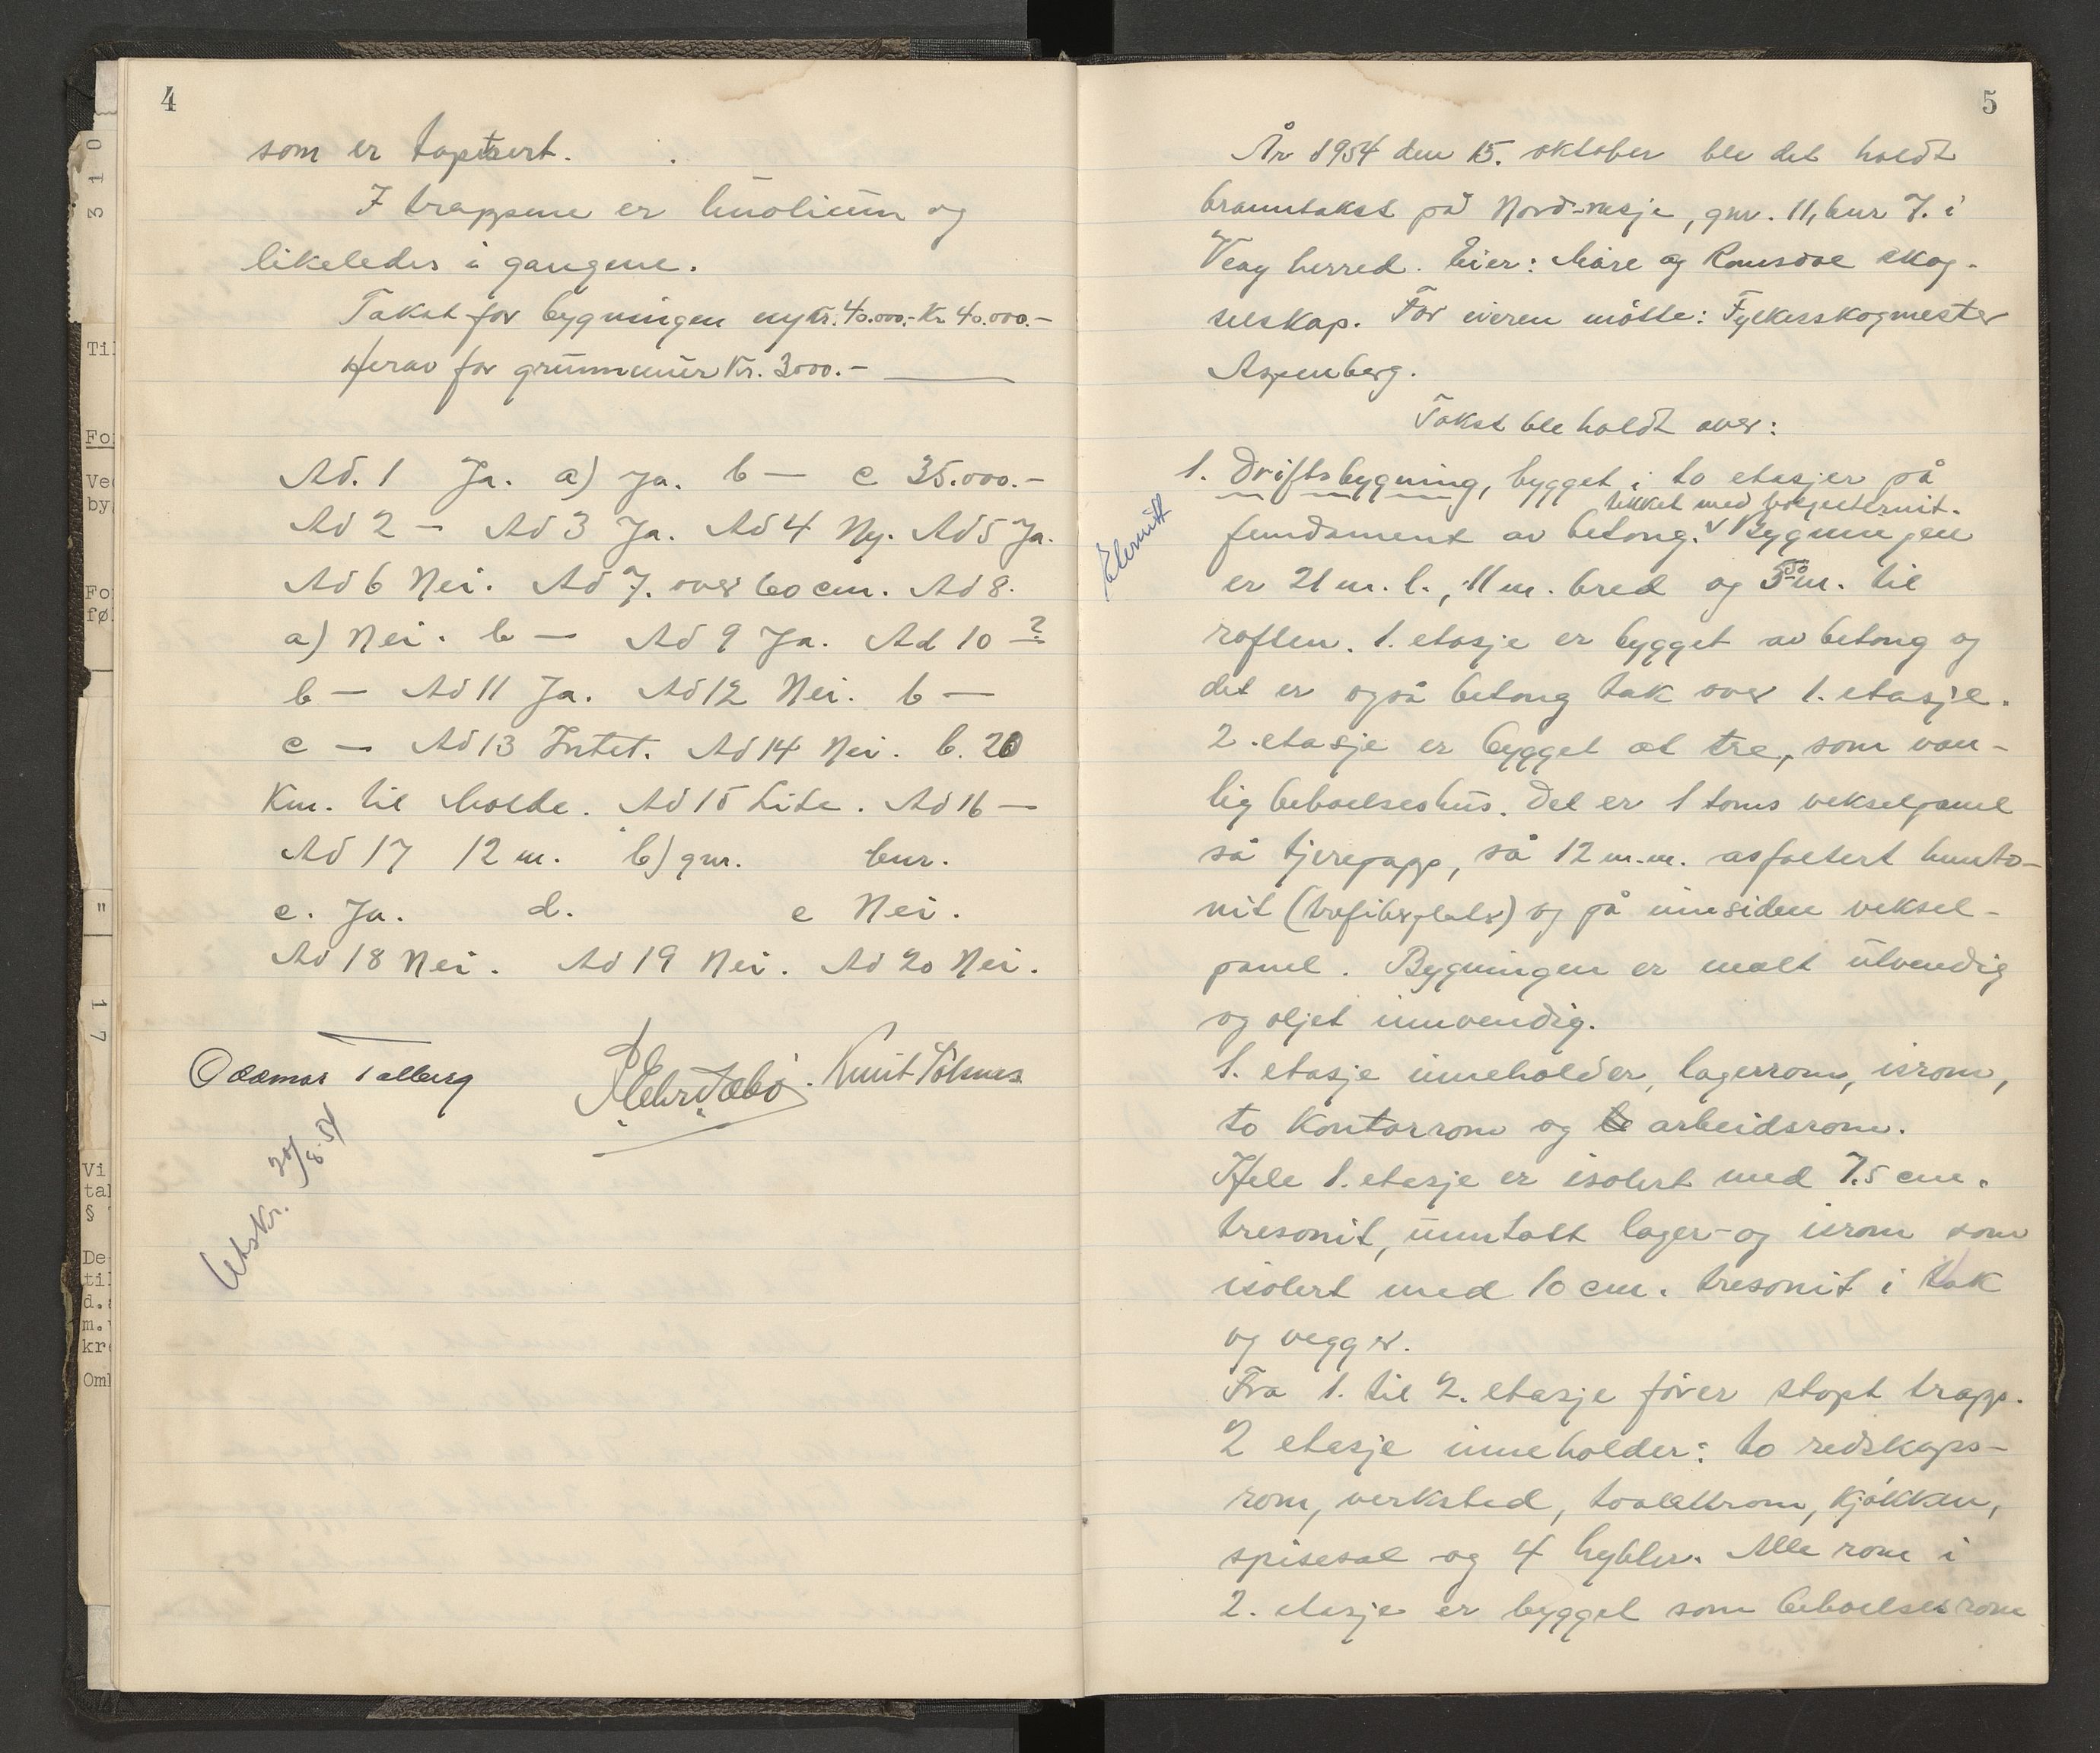 4
som er tapetsert.
I trappene er linolium og
likeledes i gangene.
Takst for bygningen ny kr. 40.000.- Kr 40.000.-
Herav for grunnmur Kr. 3000.-
Ad. 1 Ja. a) Ja. b — c 35.000.-
Ad 2 — Ad 3 Ja. Ad 4 Ny. Ad 5 Ja.
Ad 6 Nei. Ad 7. over 60 cm. Ad 8.
a) Nei. b — Ad 9 Ja. Ad 10 ?
b — Ad 11 Ja. Ad 12 Nei. b —
c — Ad 13 Intet. Ad 14 Nei. b. 20
Km. til Molde. Ad 15 Lite. Ad 16 —
Ad 17 12 m. b) gnr. bnr.
c. Ja. d. e Nei.
Ad 18 Nei. Ad 19 Nei. Ad 20 Nei.
Oddmar Talberg Knut Solsnes
Utskr. 20/8-54
5
År 1954 den 15. oktober ble det holdt
branntakst på Nord-mesje, gnr. 11, bnr 7. i
Veøy herred. Eier: Møre og Romsdal skog-
selskap. For eieren møtte: Fylkesskogmester
Aspenberg.
Takst ble holdt over:
1. Driftsbygning, bygget i to etasjer på
tekket med bølgeeternit.
fundament av betong. Bygningen
Eternitt
er 21 m. l., 11 m. bred og 5 50 m. til
raften. 1. etasje er bygget av betong og
det er også betong tak over 1. etasje.
2. etasje er bygget at tre, som van-
lig beboelseshus. Det er 1 toms vekselpanel
så tjerepapp, så 12 m.m. asfaltert hunto-
nit (trefiberplater) og på innsiden veksel-
panel. Bygningen er malt utvendig
og oljet innvendig.
1. etasje inneholder, lagerrom, isrom,
to kontorrom og arbeidsrom.
Hele 1. etasje er isolert med 7.5 cm.
tresonit, unntatt lager- og isrom som
isolert med 10 cm. tresonit i tak
og vegger.
Fra 1. til 2. etasje fører støpt trapp.
2 etasje inneholder: to redskaps-
rom, verksted, toalettrom, kjøkken,
spisesal og 4 hybler. Alle rom i
2. etasje er bygget som beboelsesrom